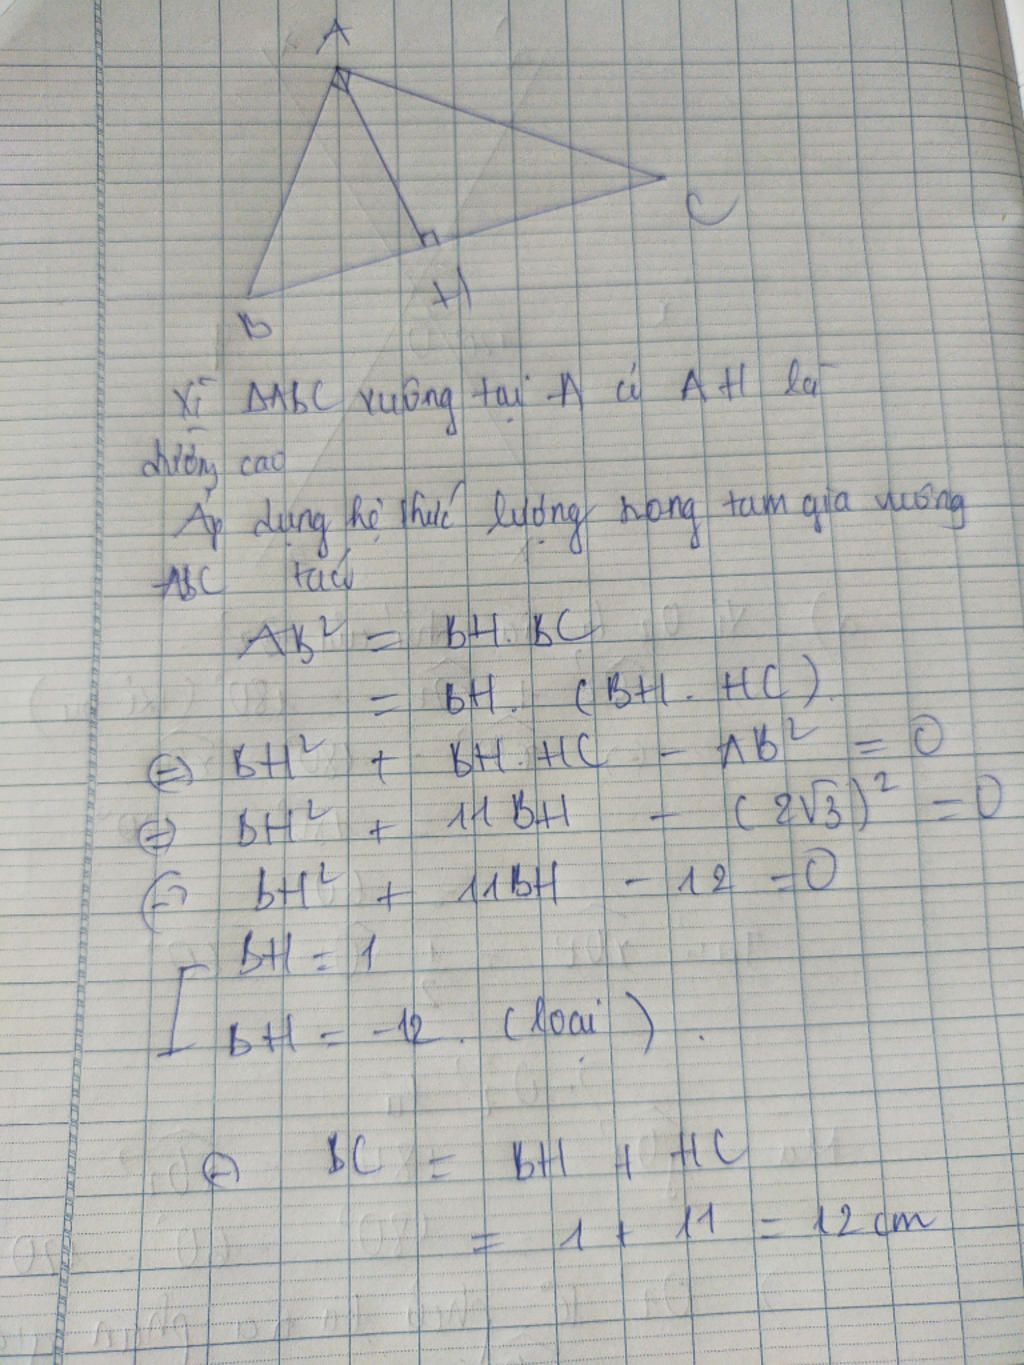 A
C
H
B
Vì ΔABC vuông tại A có AH là
đường cao
Áp dụng hệ thức lượng trong tam gia vuông
ABC ta có
AB² = BH. BC
= BH. (BH. HC)
⇔ BH² + BH.HC - AB² = 0
⇔ BH² + 11BH - (2√3)² = 0
⇔ BH² + 11BH - 12 = 0
[ BH = 1
BH = -12. (loại).
⇔ BC = BH + HC
= 1 + 11 = 12 cm